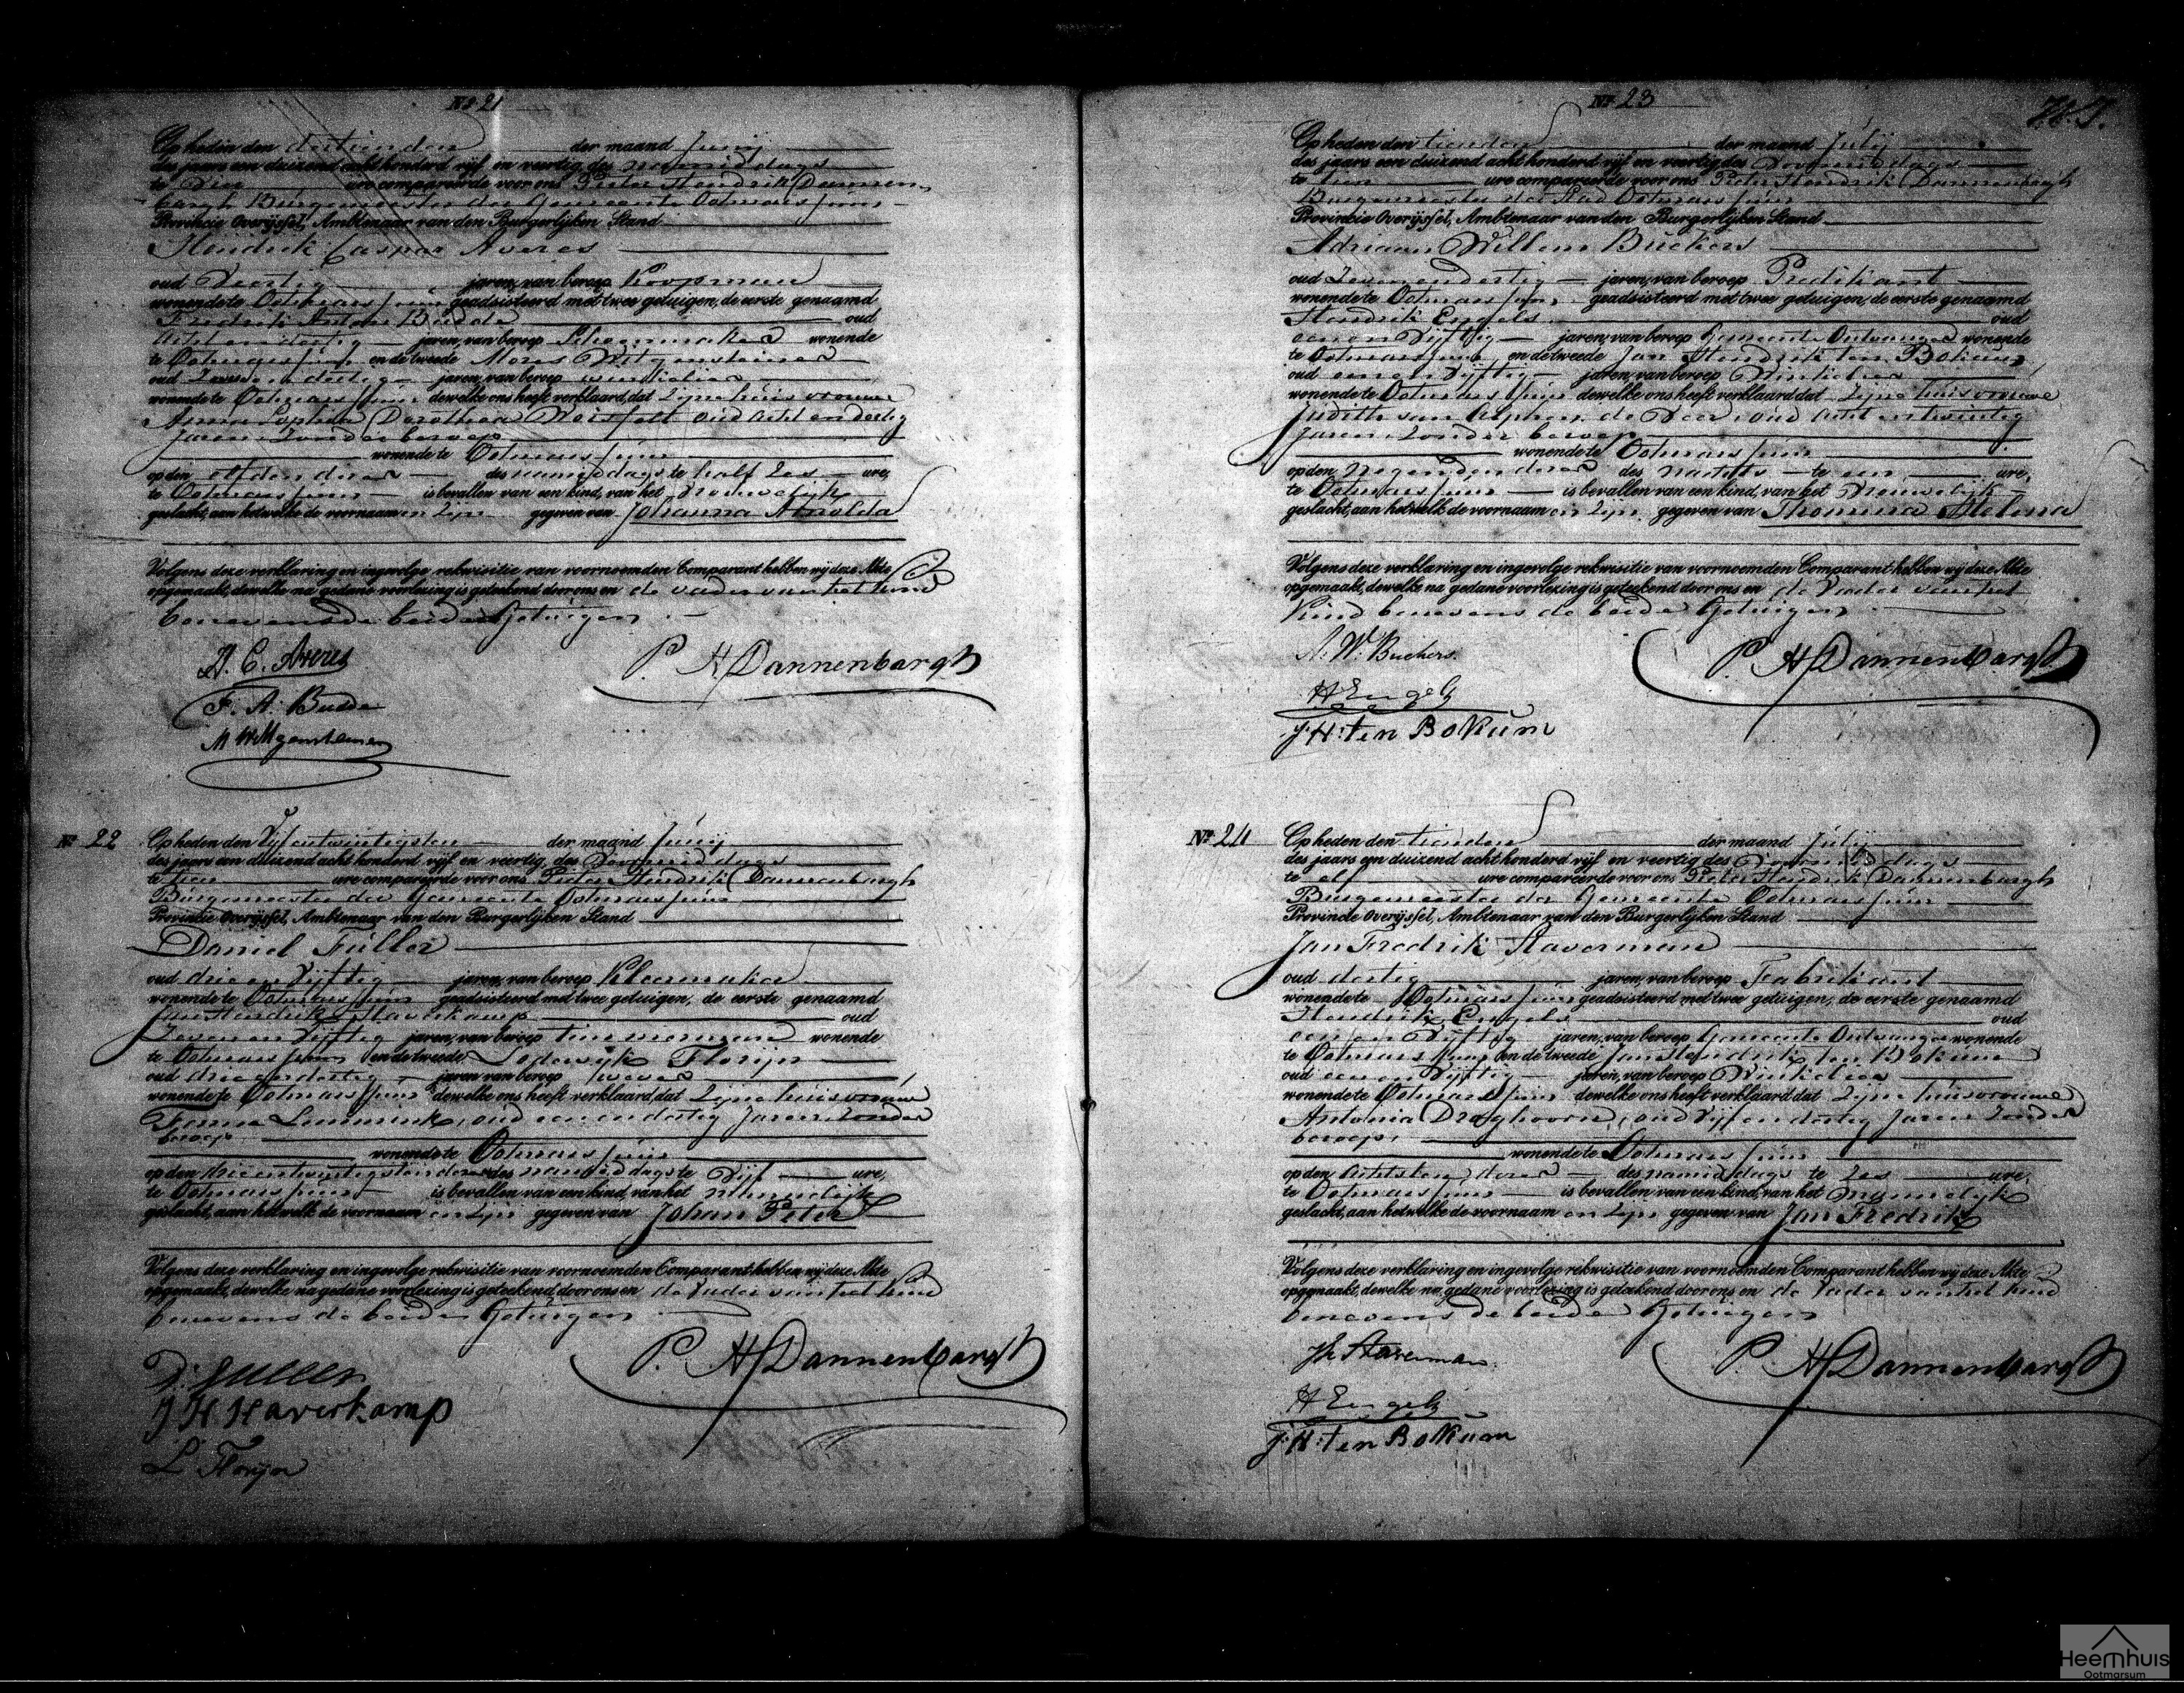 No 21
Op heden den dertienden der maand Junij
des jaars een duizend acht honderd vijf en veertig des namiddags
te vier ure compareerde voor ons Pieter Hendrik Dannen
bargh Burgemeester der Gemeente Ootmarssum
Provincie Overijssel, Ambtenaar van den Burgerlijken Stand
Hendrik Caspar Averes
oud Veertig jaren, van beroep Koopman
wonende te Ootmarssum geadsisteerd met twee getuigen, de eerste genaamd
Fredrik Anton Budde oud
Acht en dertig jaren, van beroep Schoenmaker wonende
te Ootmarssum en de tweede Mozes
oud Zeven en dertig jaren, van beroep winkelier
wonende te Ootmarssum dewelke ons heeft verklaard, dat Zijne huisvrouw
Anna Sophia Dorothea oud acht en dertig
Jaren Zonder beroep
wonende te Ootmarssum
op den elfden dezer des namiddags te half Zes ure,
te Ootmarssum is bevallen van een kind, van het Vrouwelijk
geslacht, aan hetwelke de voornaamen Zijn gegeven van Johanna Arnolda
Volgens deze verklaring en ingevolge rekwisitie van voornoemden Comparant hebben wij deze Akte
opgemaakt, dewelke na gedane voorlezing is geteekend door ons en de vader van het kind
benevens de beide Getuigen
H. C. Averes
P. H Dannenbargh
F. A. Budde
No 22
Op heden den Vijf en twintigsten der maand Junij
des jaars een duizend acht honderd vijf en veertig, des Voormiddags
te tien ure compareerde voor ons Pieter Hendrik Dannenbargh
Burgemeester der Gemeente Ootmarssum
Provincie Overijssel, Ambtenaar van den Burgerlijken Stand
Daniel Füller
oud drie en Vijftig jaren, van beroep Kleermaker
wonende te Ootmarssum geadsisteerd met twee getuigen, de eerste genaamd
Jan Hendrik Haverkamp oud
Zeven en Vijftig jaren, van beroep timmerman wonende
te Ootmarssum en de tweede Lodewijk Florijn
oud drie en dertig jaren van beroep wever
wonende te Ootmarssum dewelke ons heeft verklaard dat Zijne huisvrouw
oud een en dertig Jaren Zonder
beroep
wonende te Ootmarssum
op den drie en twintigsten dezer des namiddags te Vijf ure,
te Ootmarssum is bevallen van een kind, van het mannelijk
geslacht, aan hetwelk de voornaam en Zijn gegeven van Johan Peter
Volgens deze verklaring en ingevolge rekwisitie van voornoemden Comparant hebben wij deze Akte
opgemaakt, dewelke na gedane voorlezing is geteekend door ons en de Vader van het kind
benevens de beide Getuigen
P. H Dannenbargh
J H Haverkamp
L Florijn
No 23
Op heden den tienden der maand Julij
des jaars een duizend acht honderd vijf en veertig des Voormiddags
te tien ure compareerde voor ons Pieter Hendrik Dannenbargh
Burgemeester der Stad Ootmarssum
Provincie Overijssel, Ambtenaar van den Burgerlijken Stand
Adriaan Willem Buckers
oud Zeven en dertig jaren, van beroep Predikant
wonende te Ootmarssum geadsisteerd met twee getuigen, de eerste genaamd
Hendrik Engels oud
een en Vijftig jaren, van beroep Gemeente Ontvanger wonende
te Ootmarssum en de tweede Jan Hendrik ten Bokum
oud een en Vijftig jaren, van beroep Winkelier
wonende te Ootmarssum dewelke ons heeft verklaard dat Zijne huisvrouwe
Judith van de Veer, oud acht en twintig
Jaren Zonder beroep
wonende te Ootmarssum
op den negenden dezer des nachts te een ure,
te Ootmarssum is bevallen van een kind, van het Vrouwelijk
geslacht, aan hetwelk de voornaam en Zijn gegeven van Thomina Helena
Volgens deze verklaring en ingevolge rekwisitie van voornoemden Comparant hebben wij deze Akte
opgemaakt, dewelke na gedane voorlezing is geteekend door ons en de Vader van het
Kind benevens de beide Getuigen
A. W. Buckers
P. H Dannenbargh
H Engels
J. H: ten Bokum
No 24
Op heden den tienden der maand Julij
des jaars een duizend acht honderd vijf en veertig des Voormiddags
te elf ure compareerde voor ons Pieter Hendrik Dannenbargh
Burgemeester der Gemeente Ootmarssum
Provincie Overijssel, Ambtenaar van den Burgerlijken Stand
Jan Fredrik Staverman
oud dertig jaren, van beroep Fabrikant
wonende te Ootmarssum geadsisteerd met twee getuigen, de eerste genaamd
Hendrik Engels oud
een en Vijftig jaren, van beroep Gemeente Ontvanger wonende
te Ootmarssum en de tweede Jan Hendrik ten Bokum
oud een en Vijftig jaren, van beroep Winkelier
wonende te Ootmarssum dewelke ons heeft verklaard dat Zijne huisvrouwe
Antonia Draghoorn, oud Vijf en dertig Jaren Zonder
beroep,
wonende te Ootmarssum
op den Achtsten dezer des namiddags te Zes ure,
te Ootmarssum is bevallen van een kind, van het mannelijk
geslacht, aan hetwelke de voornaam en Zijn gegeven van Jan Fredrik
Volgens deze verklaring en ingevolge rekwisitie van voornoemden Comparant hebben wij deze Akte
opgemaakt, dewelke na gedane voorlezing is geteekend door ons en de Vader van het kind
benevens de beide Getuigen
P. H Dannenbargh
H Engels
J. H: ten Bokum
Heemhuis
Ootmarsum